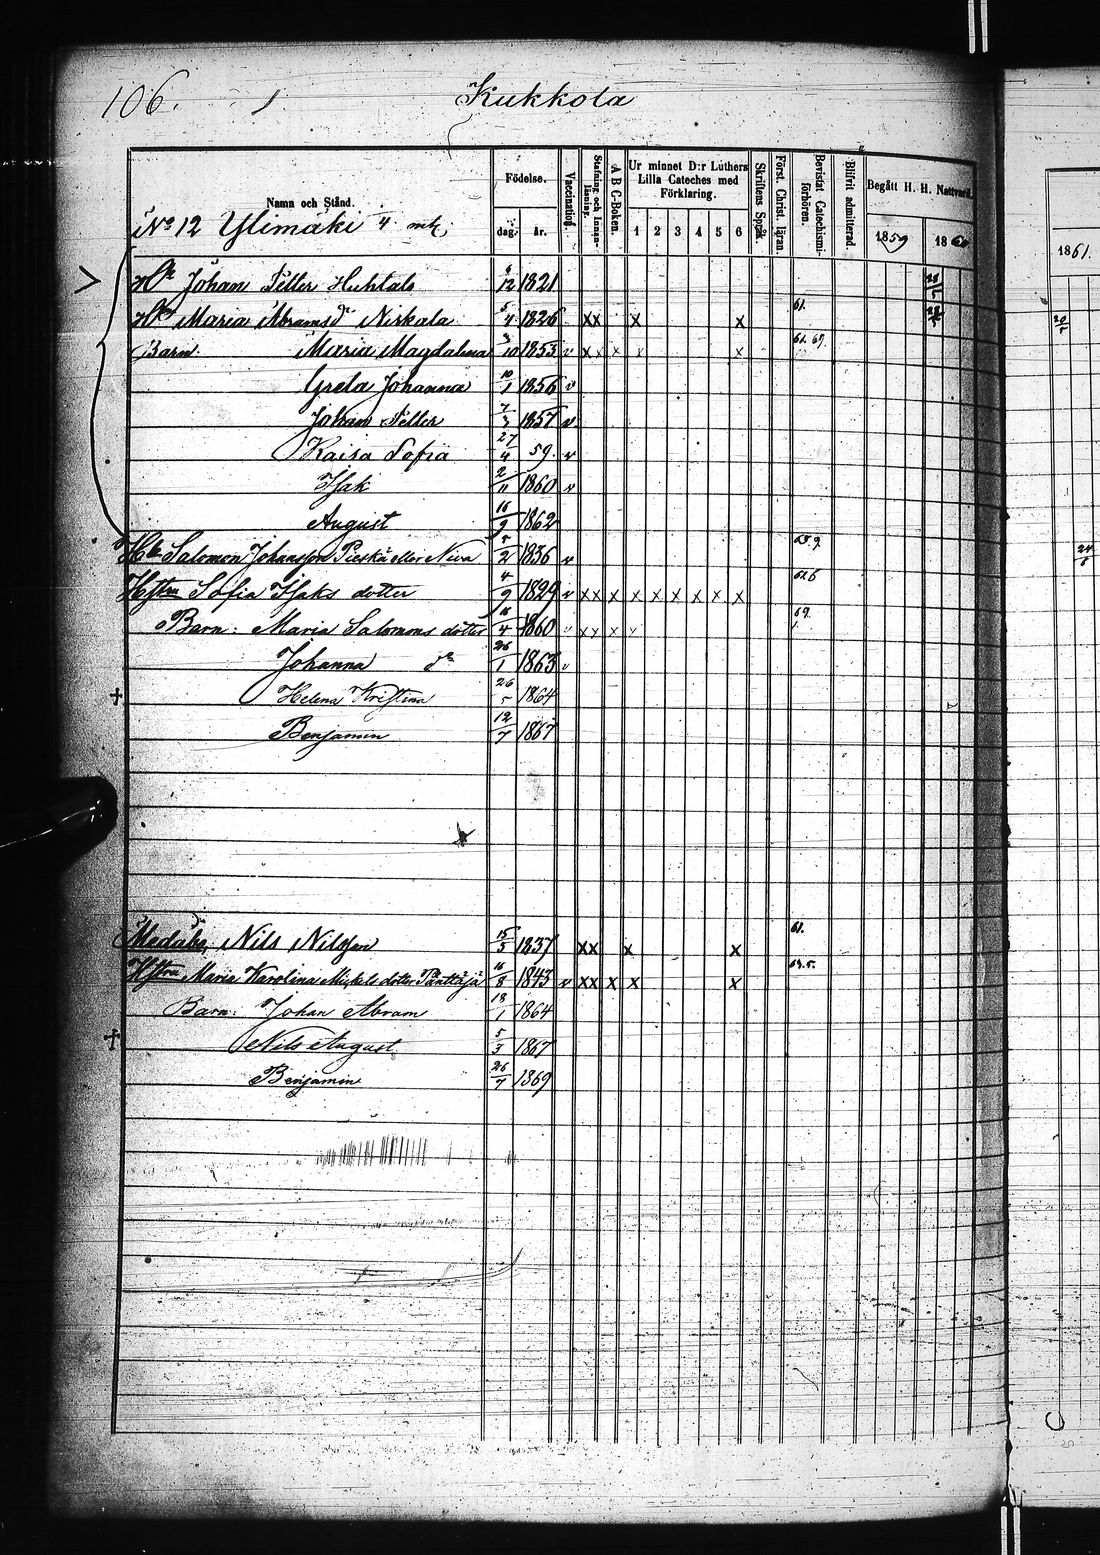 106.
Kukkola
Namn och Stånd. Födelse. dag. år. Vaccination. Stafning och Innanläsning. A B C-Boken. Ur minnet D:r Luthers Lilla Cateches med Förklaring. 1 2 3 4 5 6 Skriftens Språk. Först. Christ. läran. Bevistat Catechismiförhören. Blifvit admitterad. Begått H. H. Nattvard. 1859 1860 1861.
No 12 Ylimäki 4 mtl.
Johan Petter Huhtala 12 1821
Maria Abramsdr Niskala 5/4 1826 xx x x 61.
Barn. Maria Magdalena 3/10 1853 v xx x v x
Greta Johanna 10/1 1856 v
Johan Petter 7/3 1857 v
Kaisa Sofia 27/4 59. v
Isak 2/11 1860 v
August 16/9 1862
Salomon Johansson Pieskä eller Niva 5/2 1836 v
Hstru Sofia Isaks dotter 4/9 1829 v xx x x x x x x x
Barn: Maria Salomons dotter 16/4 1860 v xx x v
Johanna dr 26/1 1863 v
+ Helena Kristina 26/5 1864
Benjamin 12/7 1867
Nils Nilsson 15/3 1837 xx x x 61.
Hstru Maria Karolina Mickels dotter Pänttäjä 16/8 1843 v xx x x x
Barn: Johan Abram 18/1 1864
+ Nils August 5/3 1867
Benjamin 26/7 1869